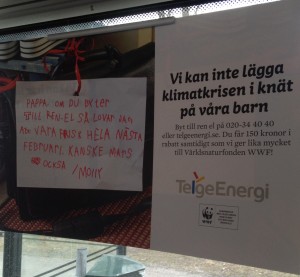 PAPPA, OM DU BYTER
TILL REN EL SÅ LOVAR JAG
ATT VARA FRISK HELA NÄSTA
FEBRUARI. KANSKE MARS
OCKSÅ
/MOLLY
Vi kan inte lägga
klimatkrisen i knät
på våra barn
Byt till ren el på 020-34 40 40
eller telgeenergi.se. Du får 150 kronor i
rabatt samtidigt som vi ger lika mycket
till Världsnaturfonden WWF!
TelgeEnergi
WWF